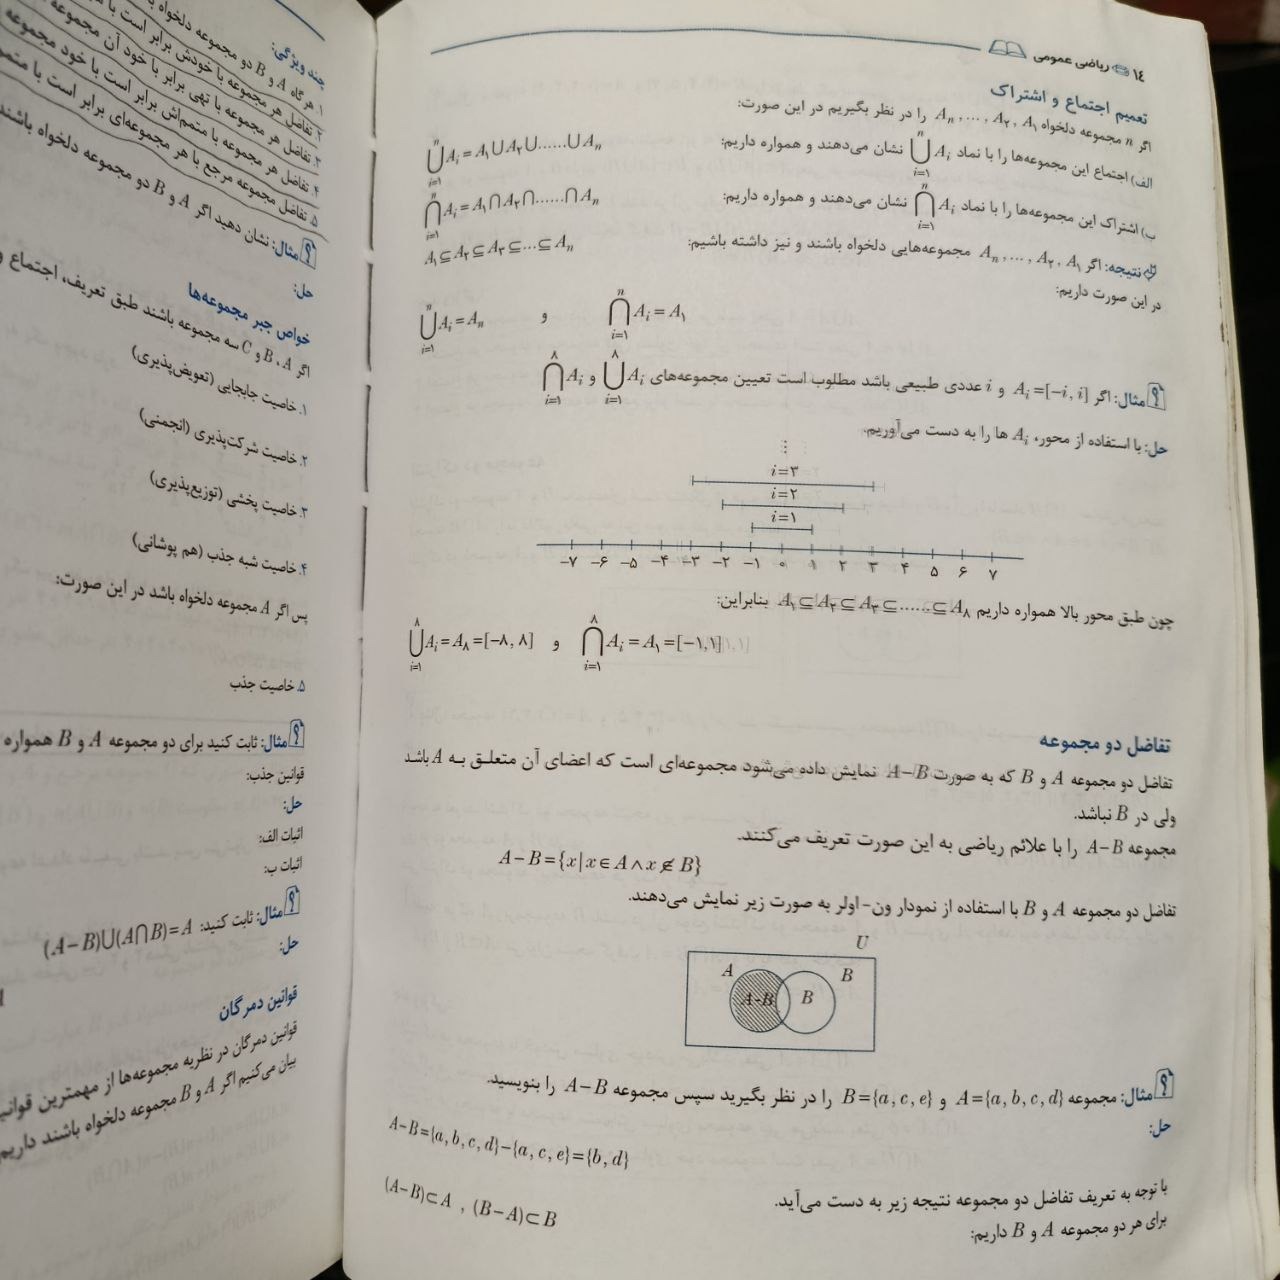 ۱۴ ریاضی عمومی
تعمیم اجتماع و اشتراک
اگر n مجموعه دلخواه A₁ , A₂ , … , Aₙ را در نظر بگیریم در این صورت:
الف) اجتماع این مجموعه‌ها را با نماد ⋃ᵢ₌₁ⁿ Aᵢ نشان می‌دهند و همواره داریم: ⋃ᵢ₌₁ⁿ Aᵢ = A₁∪A₂∪......∪Aₙ
ب) اشتراک این مجموعه‌ها را با نماد ⋂ᵢ₌₁ⁿ Aᵢ نشان می‌دهند و همواره داریم: ⋂ᵢ₌₁ⁿ Aᵢ = A₁∩A₂∩......∩Aₙ
نتیجه: اگر A₁ , A₂ , … , Aₙ مجموعه‌هایی دلخواه باشند و نیز داشته باشیم: A₁⊆A₂⊆A₃⊆...⊆Aₙ
در این صورت داریم:
⋃ᵢ₌₁ⁿ Aᵢ = Aₙ و ⋂ᵢ₌₁ⁿ Aᵢ = A₁
مثال: اگر Aᵢ=[−i, i] و i عددی طبیعی باشد مطلوب است تعیین مجموعه‌های ⋃ᵢ₌₁⁸ Aᵢ و ⋂ᵢ₌₁⁸ Aᵢ
حل: با استفاده از محور، Aᵢ ها را به دست می‌آوریم.
i=۳
i=۲
i=۱
−۷ −۶ −۵ −۴ −۳ −۲ −۱ ۰ ۱ ۲ ۳ ۴ ۵ ۶ ۷
چون طبق محور بالا همواره داریم A₁⊆A₂⊆A₃⊆......⊆A₈ بنابراین:
⋃ᵢ₌₁⁸ Aᵢ = A₈ = [−۸, ۸] و ⋂ᵢ₌₁⁸ Aᵢ = A₁ = [−۱,۱]
تفاضل دو مجموعه
تفاضل دو مجموعه A و B که به صورت A−B نمایش داده می‌شود مجموعه‌ای است که اعضای آن متعلق به A باشد
ولی در B نباشد.
مجموعه A−B را با علائم ریاضی به این صورت تعریف می‌کنند.
A−B={x|x∈A∧x∉B}
تفاضل دو مجموعه A و B با استفاده از نمودار ون- اولر به صورت زیر نمایش می‌دهند.
U
A B
A-B B
مثال: مجموعه A={a, b, c, d} و B={a, c, e} را در نظر بگیرید سپس مجموعه A−B را بنویسید.
حل:
A−B={a, b, c, d}−{a, c, e}={b, d}
با توجه به تعریف تفاضل دو مجموعه نتیجه زیر به دست می‌آید.
برای هر دو مجموعه A و B داریم:
(A−B)⊂A , (B−A)⊂B
چند ویژگی:
۱. هر گاه A و B دو مجموعه دلخواه
۲. تفاضل هر مجموعه با خودش برابر است با
۳. تفاضل هر مجموعه با تهی برابر با خود آن مجموعه
۴. تفاضل هر مجموعه با متمم‌اش برابر است با خود مجموعه
۵. تفاضل مجموعه مرجع با هر مجموعه‌ای برابر است با متمم
مثال: نشان دهید اگر A و B دو مجموعه دلخواه باشند
حل:
خواص جبر مجموعه‌ها
اگر A، B و C سه مجموعه باشند طبق تعریف، اجتماع و
۱. خاصیت جابجایی (تعویض‌پذیری)
۲. خاصیت شرکت‌پذیری (انجمنی)
۳. خاصیت پخشی (توزیع‌پذیری)
۴. خاصیت شبه جذب (هم پوشانی)
پس اگر A مجموعه دلخواه باشد در این صورت:
۵. خاصیت جذب
مثال: ثابت کنید برای دو مجموعه A و B همواره
قوانین جذب:
حل:
اثبات الف:
اثبات ب:
مثال: ثابت کنید: (A−B)∪(A∩B)=A
حل:
قوانین دمرگان
قوانین دمرگان در نظریه مجموعه‌ها از مهمترین قوانین
بیان می‌کنیم اگر A و B مجموعه دلخواه باشند داریم